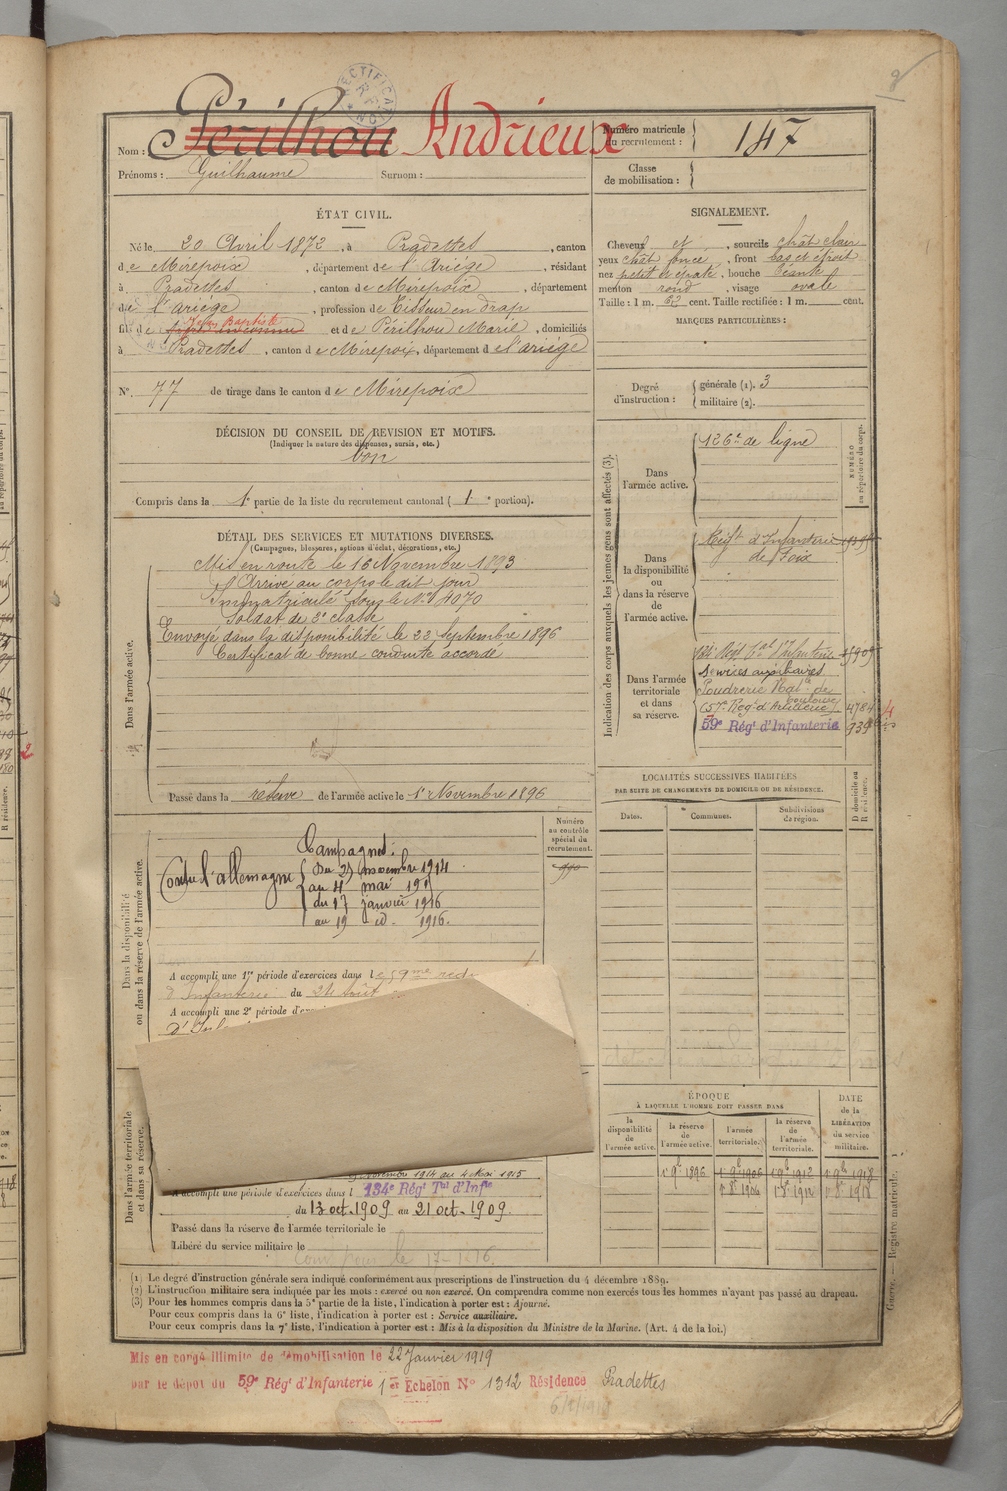 2
Nom : Périlhou Andrieux
Prénoms : Guilhaume Surnom :
Numéro matricule du recrutement : 147
Classe de mobilisation :
ÉTAT CIVIL.
Né le 20 Avril 1872, à Pradettes, canton
de Mirepoix, département de l'Ariége, résidant
à Pradettes, canton de Mirepoix, département
de l'ariége, profession de Tisseur en drap
fils de Jean Baptiste et de Périlhou Marie, domiciliés
à Pradettes, canton de Mirepoix, département de l'ariége
N°. 77 de tirage dans le canton de Mirepoix
DÉCISION DU CONSEIL DE REVISION ET MOTIFS.
(Indiquer la nature des dispenses, sursis, etc.)
bon
Compris dans la 1e partie de la liste du recrutement cantonal ( 1e portion).
SIGNALEMENT.
Cheveux et , sourcils chât clair
yeux chât foncé , front bas et étroit
nez petit et épaté , bouche béante
menton rond , visage ovale
Taille : 1 m. 62 cent. Taille rectifiée : 1 m. cent.
MARQUES PARTICULIÈRES :
Degré d'instruction :
générale (1). 3
militaire (2).
DÉTAIL DES SERVICES ET MUTATIONS DIVERSES.
(Campagnes, blessures, actions d'éclat, décorations, etc.)
Dans l'armée active.
Mis en route le 16 Novembre 1893
Arrivé au corps le dit jour
Immatriculé sous le N° 4070
Soldat de 2e classe
Envoyé dans la disponibilité le 23 Septembre 1896
Certificat de bonne conduite accordé
Passé dans la réserve de l'armée active le 1er Novembre 1896
Indication des corps auxquels les jeunes gens sont affectés (3).
NUMÉRO au répertoire du corps.
Dans l'armée active.
126e de ligne
Dans la disponibilité ou dans la réserve de l'armée active.
Régt d'Infanterie
de Foix
Dans l'armée territoriale et dans sa réserve.
Services auxiliaires
Poudrerie Natle de
toulouse
(57e Régt d'Artillerie) 4784
59e Régt d'Infanterie
LOCALITÉS SUCCESSIVES HABITÉES
PAR SUITE DE CHANGEMENTS DE DOMICILE OU DE RÉSIDENCE.
Dates.
Communes.
Subdivisions de région.
D domicile ou R résidence.
Numéro au contrôle spécial du recrutement.
990
Dans la disponibilité ou dans la réserve de l'armée active.
Campagnes :
Contre l'allemagne
du 25 novembre 1914
au 4 mai 191
du 17 janvier 1916
au 19 id. 1916.
A accompli une 1re période d'exercices dans le 59me
d'Infanterie du 24 Août
A accompli une 2e période
Dans l'armée territoriale et dans sa réserve.
1914 au 4 Mai 1915
A accompli une période d'exercices dans l 134e Régt Tal d'Infie
du 13 oct. 1909 au 21 oct. 1909.
Passé dans la réserve de l'armée territoriale le
Libéré du service militaire le
ÉPOQUE
À LAQUELLE L'HOMME DOIT PASSER DANS
la disponibilité de l'armée active.
la réserve de l'armée active.
l'armée territoriale.
la réserve de l'armée territoriale.
DATE de la LIBÉRATION du service militaire.
1er 9b 1896 1er 9b 1906 1er 9b 1912 1er 9b 1918
1er 8b 1906 1er 8b 1912 1er 8b 1918
Guerre. — Registre matricule.
(1) Le degré d'instruction générale sera indiqué conformément aux prescriptions de l'instruction du 4 décembre 1889.
(2) L'instruction militaire sera indiquée par les mots : exercé ou non exercé. On comprendra comme non exercés tous les hommes n'ayant pas passé au drapeau.
(3) Pour les hommes compris dans la 5e partie de la liste, l'indication à porter est : Ajourné.
Pour ceux compris dans la 6e liste, l'indication à porter est : Service auxiliaire.
Pour ceux compris dans la 7e liste, l'indication à porter est : Mis à la disposition du Ministre de la Marine. (Art. 4 de la loi.)
Mis en congé illimité de démobilisation le 22 Janvier 1919
par le dépôt du 59e Régt d'Infanterie 1er Echelon N° 1312 Résidence Pradettes